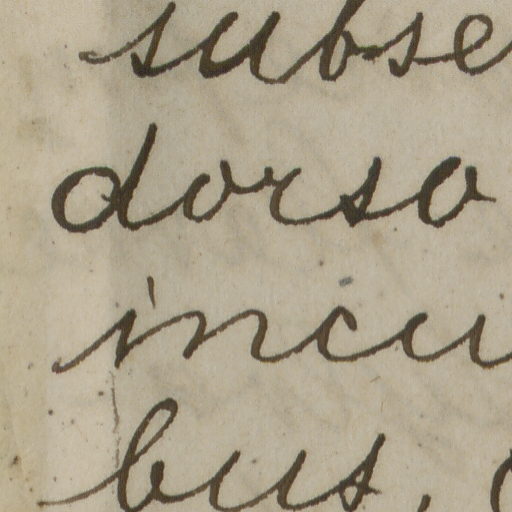 subse
dorso
incu
bus,